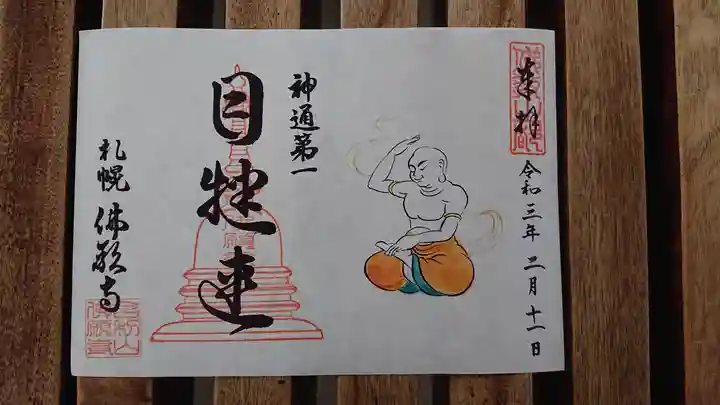 奉拝
令和三年二月十一日
神通第一
目犍連
札幌佛願寺